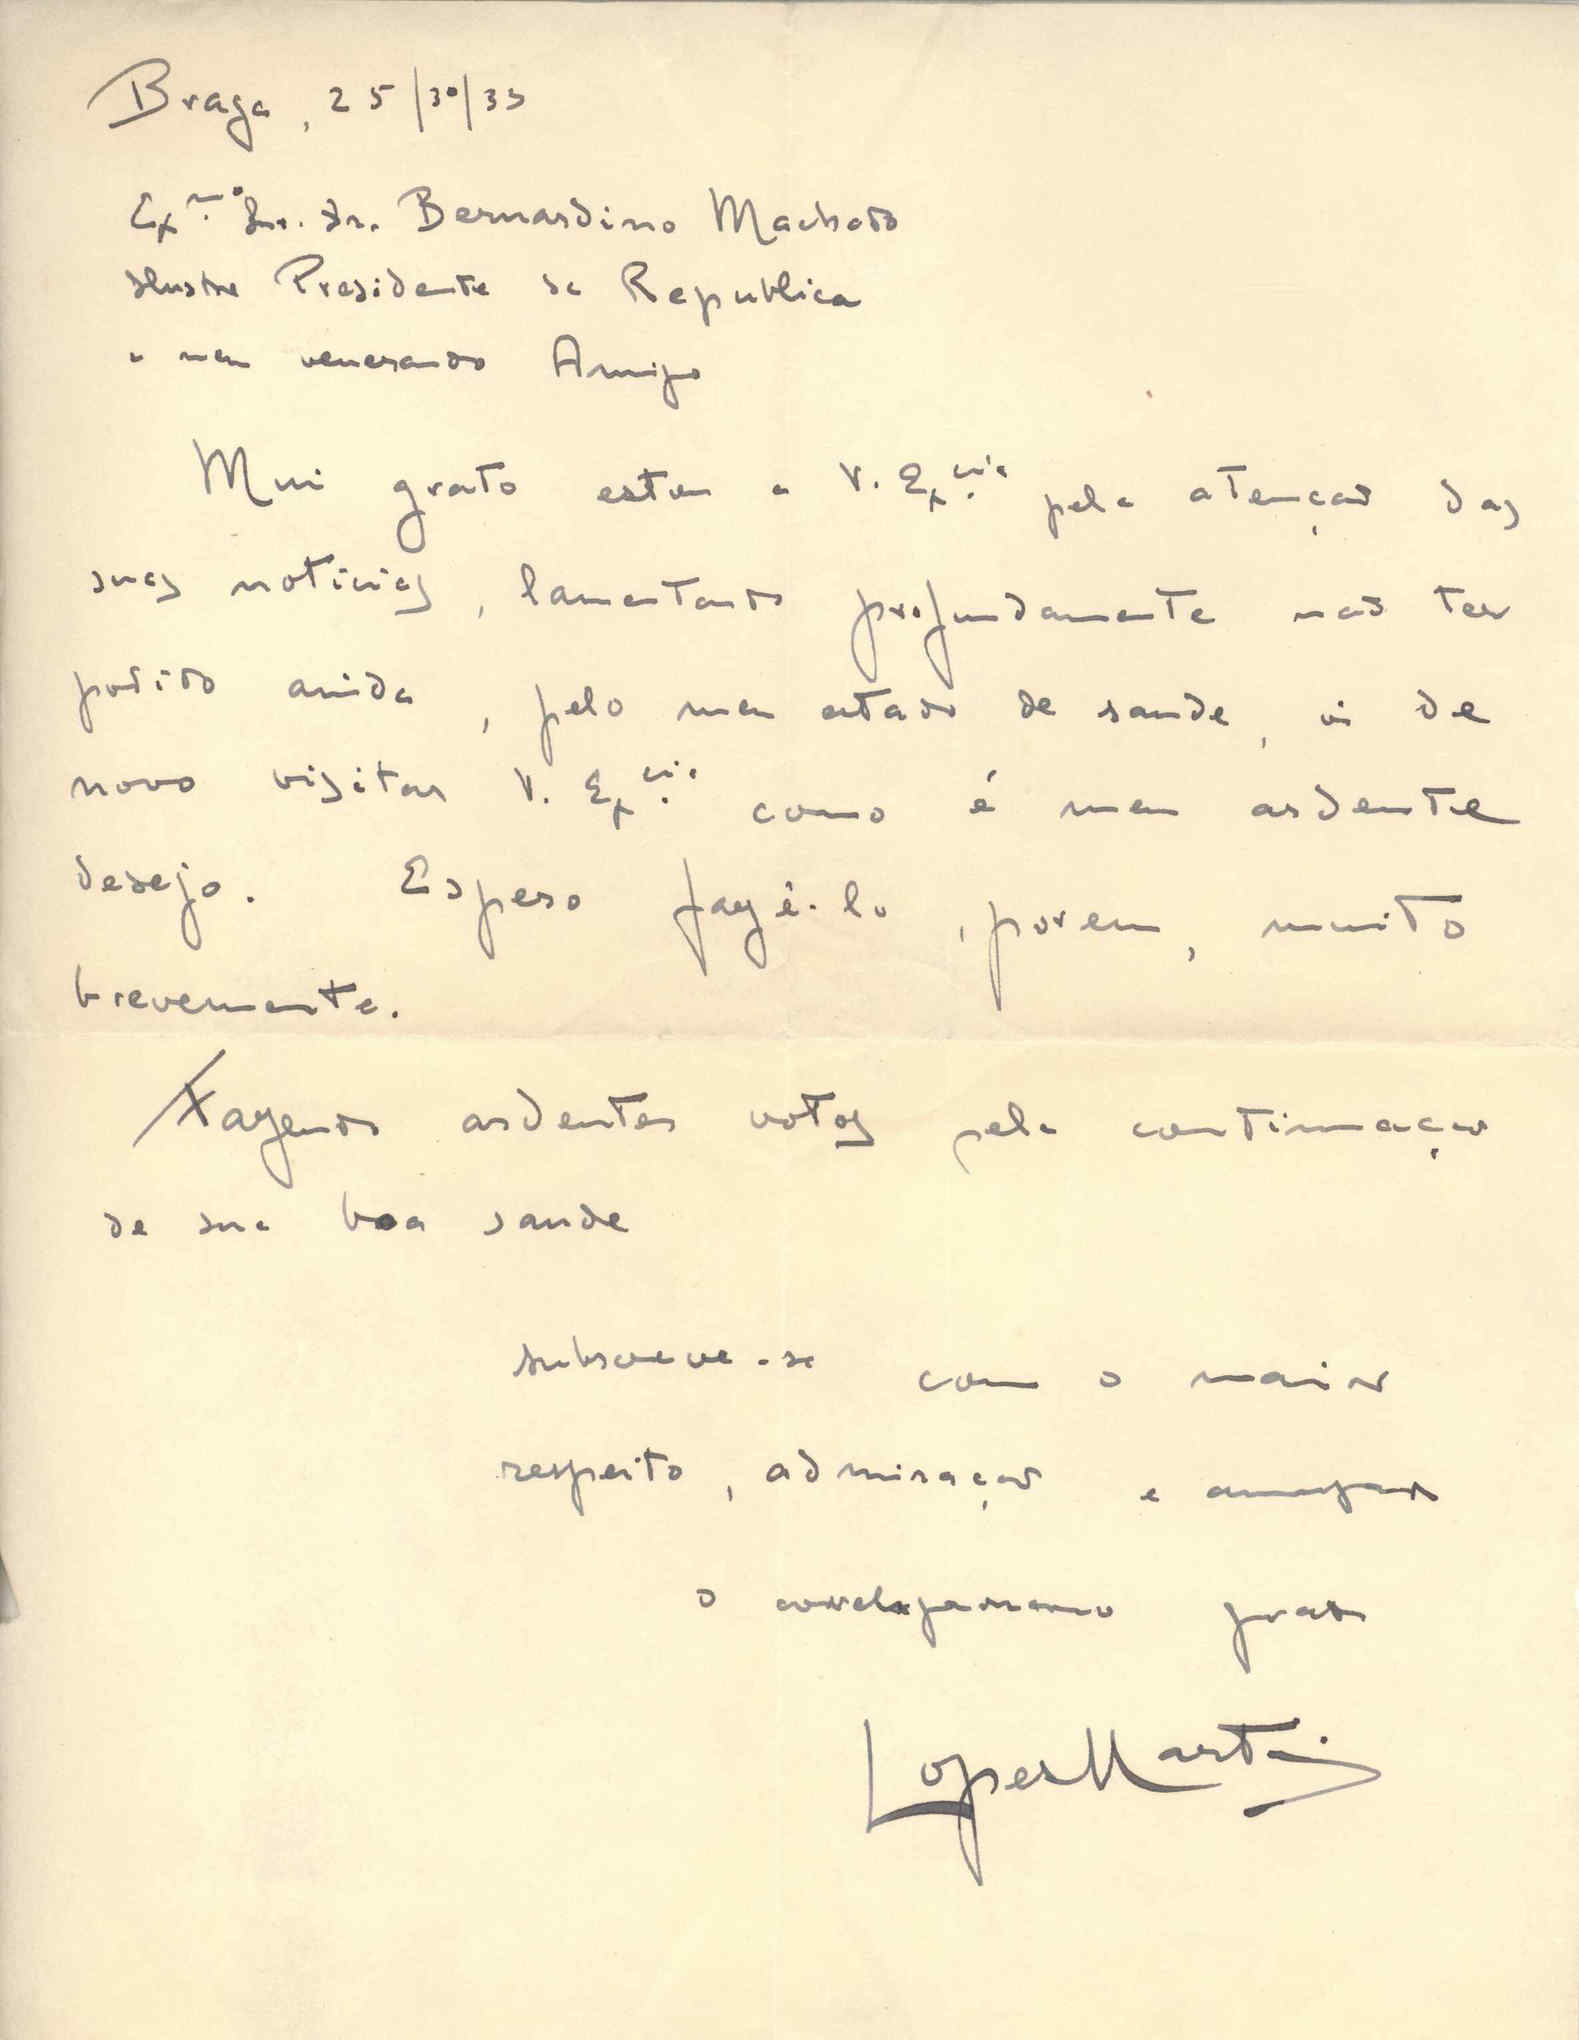 Braga, 25/10/33
Ex.mo Sr. Dr. Bernardino Machado
Ilustre Presidente da Republica
e meu venerando Amigo
Mui grato estou a V. Ex.cia pela atenção das
suas noticias, lamentando profundamente não ter
podido ainda, pelo meu estado de saude, ir de
novo visitar V. Ex.cia como é meu ardente
desejo. Espero fazê-lo, porem, muito
brevemente.
Fazendo ardentes votos pela continuação
de sua boa saude
subscreve-se com o maior
respeito, admiração e amizade
o correligionario grato
Lopes Martins